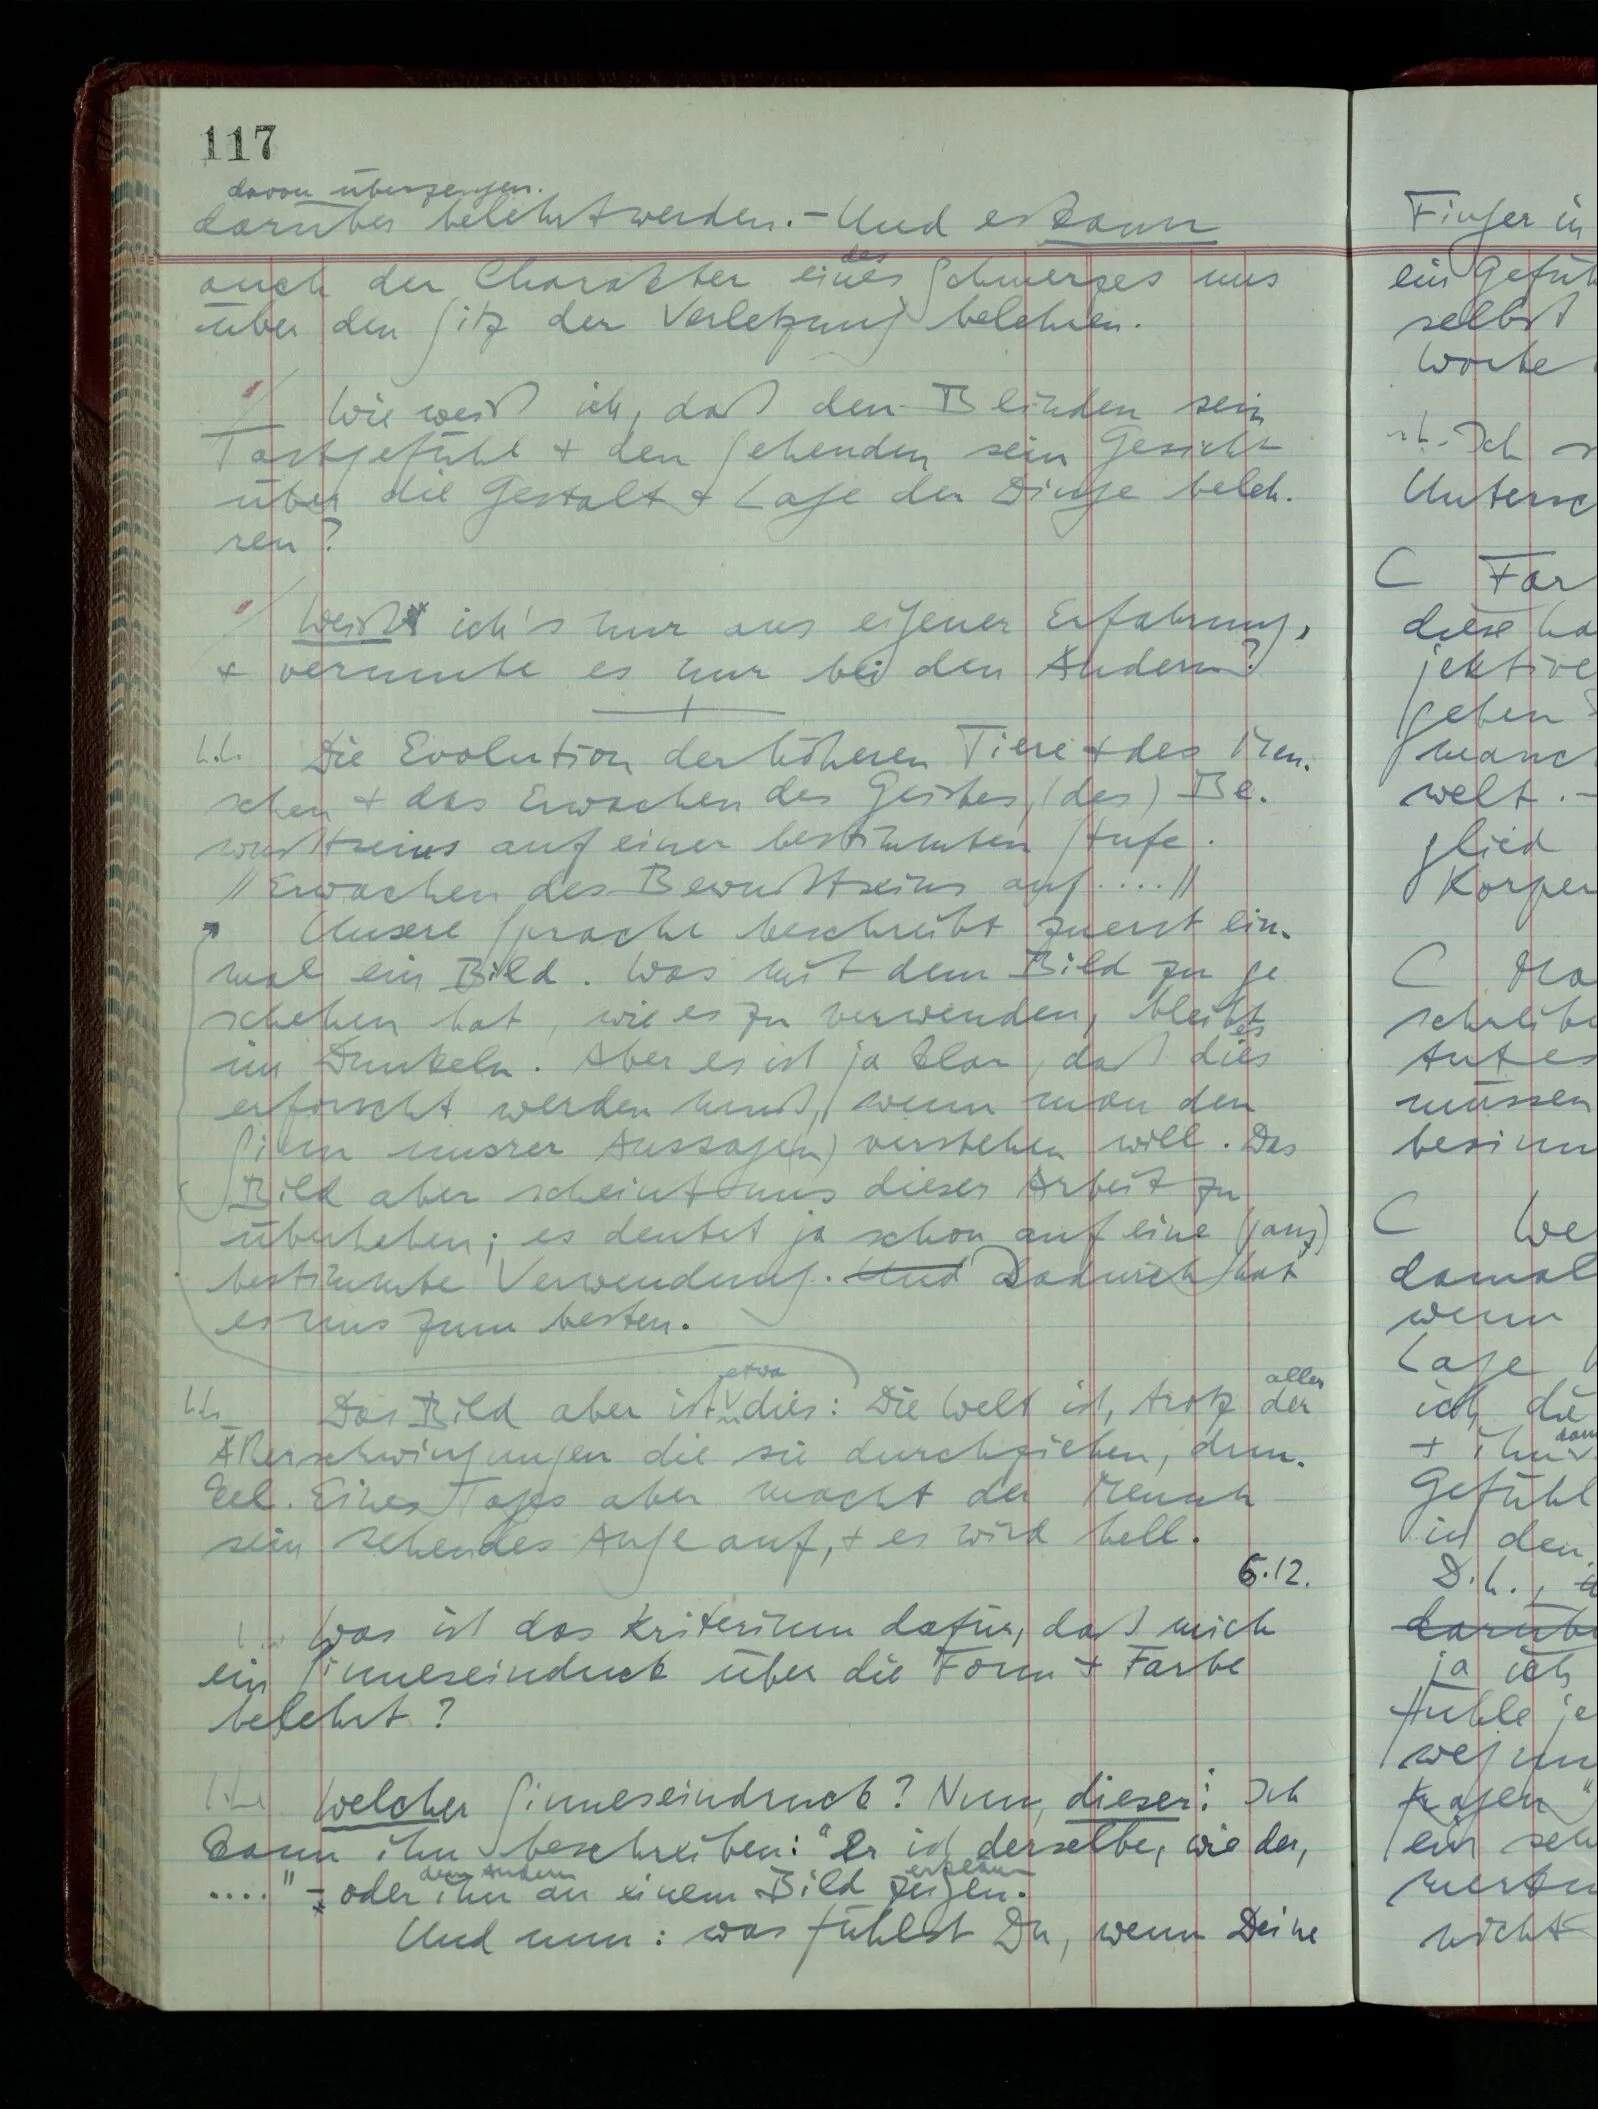 117
davon überzeugen.
darüber belehrt werden. – Und es kann
des
auch der Charakter eines Schmerzes uns
über den Sitz der Verletzung belehren.
Wie weiß ich, daß den Blinden sein
Tastgefühl + den Sehenden sein Gesicht
über die Gestalt + Lage der Dinge beleh-
ren?
Weiß ich's nur aus eigener Erfahrung,
+ vermute es nur bei den Andern?
Die Evolution der höheren Tiere + des Men-
schen + das Erwachen des Geistes, (des) Be-
wußtseins auf einer bestimmten Stufe.
// Erwachen des Bewußtseins auf .... //
Unsere Sprache beschreibt zuerst ein-
mal ein Bild. Was mit dem Bild zu ge
schehen hat, wie es zu verwenden, bleibt
es
im Dunkeln. Aber es ist ja klar, daß dies
erforscht werden muß, wenn man den
Sinn unsrer Aussage(n) verstehen will. Das
Bild aber scheint uns dieser Arbeit zu
überheben; es deutet ja schon auf eine (ganz)
bestimmte Verwendung. Und Dadurch hat
es uns zum besten.
etwa
aller
Das Bild aber ist dies: Die Welt ist, trotz der
Ätherschwingungen die sie durchziehen, dun-
kel. Eines Tages aber macht der Mensch
sein sehendes Auge auf, + es wird hell.
6.12.
Was ist das Kriterium dafür, daß mich
ein Sinneseindruck über die Form + Farbe
belehrt?
Welcher Sinneseindruck? Nun, dieser: Ich
kann ihn beschreiben: "Er ist derselbe, wie der,
dem Andern
erklären
...." – oder ihn an einem Bild zeigen.
Und nun: was fühlst Du, wenn Deine
Finger in
ein Gefüh
selbst
Worte
Ich
Untersc
C Far
diese ha
jektive
geben
manch
welt. –
glied
Körper
C Ma
schreibe
Aut es
müssen
besinn
C We
damal
wenn
Lage
ich die
+ ihm
Gefühl
ist den
D.h.,
darübe
ja ich
fühle je
weg un
fragen"
ein seh
merkw
nicht